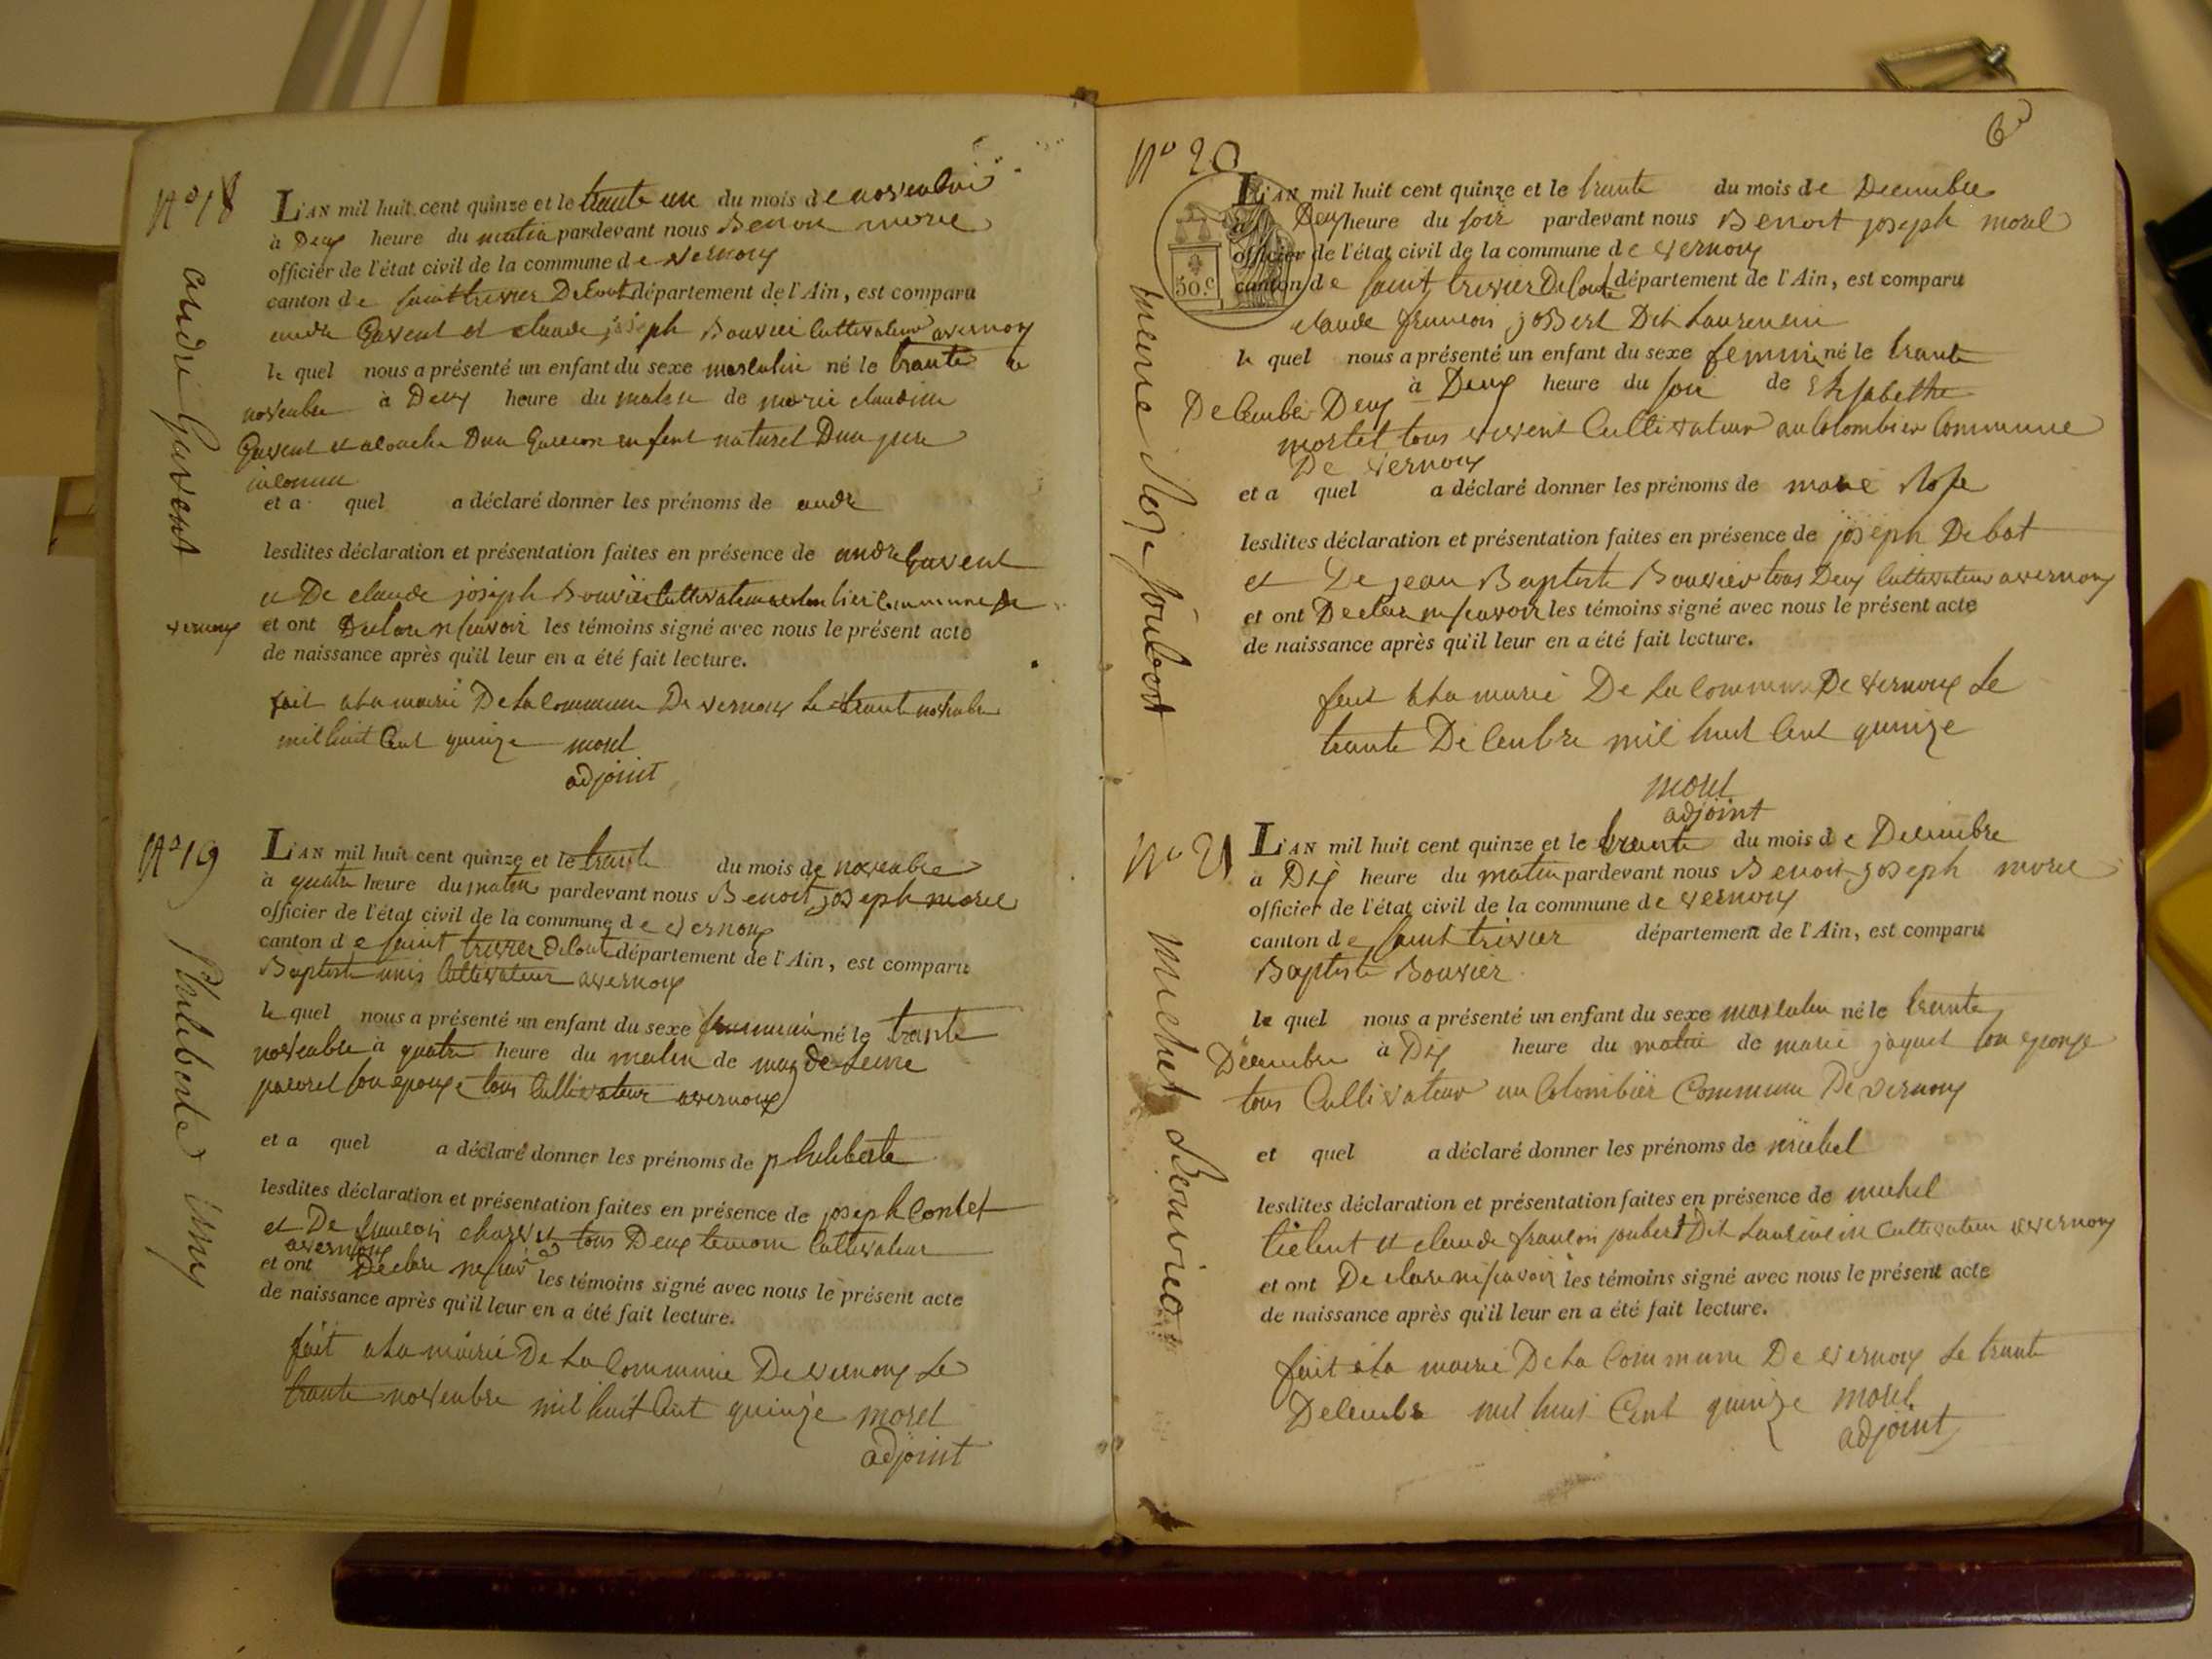 N° 18
andre Gavent
L'AN mil huit cent quinze et le trante un du mois de novembre
à Deux heure du matin pardevant nous Benoit morel
officier de l'état civil de la commune de vernoux
canton de saint trivier De Court département de l'Ain, est comparu
andre Gavent et claude joseph Bouvier Cultivateur a vernoux
le quel nous a présenté un enfant du sexe masculin né le trante de
novembre à Deux heure du matin de marie claudine
Gavent et alouche Dun Garcon enfent naturel Dun pere
inconnu
et a quel a déclaré donner les prénoms de andre
lesdites déclaration et présentation faites en présence de andre Gavent
et De claude joseph Bouvier Cultivateur Commune de
vernoux et ont Declare ne scavoir les témoins signé avec nous le présent acte
de naissance après qu'il leur en a été fait lecture.
fait a La mairie De La Commune De vernoux Le trante novembre
mil huit Cent quinze morel
adjoint
N° 19
Philiberte unis
L'AN mil huit cent quinze et le trante du mois de novembre
à quatre heure du matin pardevant nous Benoit joseph morel
officier de l'état civil de la commune de vernoux
canton de saint trivier De Court département de l'Ain, est comparu
Baptiste unis Cultivateur a vernoux
le quel nous a présenté un enfant du sexe feminin né le trante
novembre à quatre heure du matin de magdeleine
pacoret son epouse tous Cultivateur a vernoux
et a quel a déclaré donner les prénoms de philiberte
lesdites déclaration et présentation faites en présence de joseph Contet
et De francois charvet tous Deux temoin Cultivateur
a vernoux
et ont Declare ne scav les témoins signé avec nous le présent acte
de naissance après qu'il leur en a été fait lecture.
fait a La mairie De La Commune De vernoux Le
trante novembre mil huit Cent quinze morel
adjoint
6
N° 20
50.c
marie Roze Joubert
L'AN mil huit cent quinze et le trante du mois de Decembre
à Deux heure du soir pardevant nous Benoit joseph morel
officier de l'état civil de la commune de vernoux
canton de saint trivier De Court département de l'Ain, est comparu
claude francois jobert Dit Laurencin
le quel nous a présenté un enfant du sexe feminin né le trante
Decembre Deux à Deux heure du soir de Elisabethe
mortel tous vivent Cultivateur au Colombier Commune
De vernoux
et a quel a déclaré donner les prénoms de marie Rose
lesdites déclaration et présentation faites en présence de joseph Debot
et De jean Baptiste Bouvier tous Deux Cultivateur a vernoux
et ont Declare ne scavoir les témoins signé avec nous le présent acte
de naissance après qu'il leur en a été fait lecture.
fait a La mairie De La Commune De vernoux Le
trante Decembre mil huit Cent quinze
morel
adjoint
N° 21
michel Bouvier
L'AN mil huit cent quinze et le trante du mois de Decembre
à Dix heure du matin pardevant nous Benoit joseph morel
officier de l'état civil de la commune de vernoux
canton de saint trivier département de l'Ain, est comparu
Baptiste Bouvier
le quel nous a présenté un enfant du sexe masculin né le trante
Decembre à Dix heure du matin de marie jaquet son epouse
tous Cultivateur au Colombier Commune De vernoux
et quel a déclaré donner les prénoms de michel
lesdites déclaration et présentation faites en présence de michel
et claude francois joubert Dit Laurencin Cultivateur a vernoux
et ont Declare ne scavoir les témoins signé avec nous le présent acte
de naissance après qu'il leur en a été fait lecture.
fait a La mairie De La Commune De vernoux Le trante
Decembre mil huit Cent quinze morel
adjoint